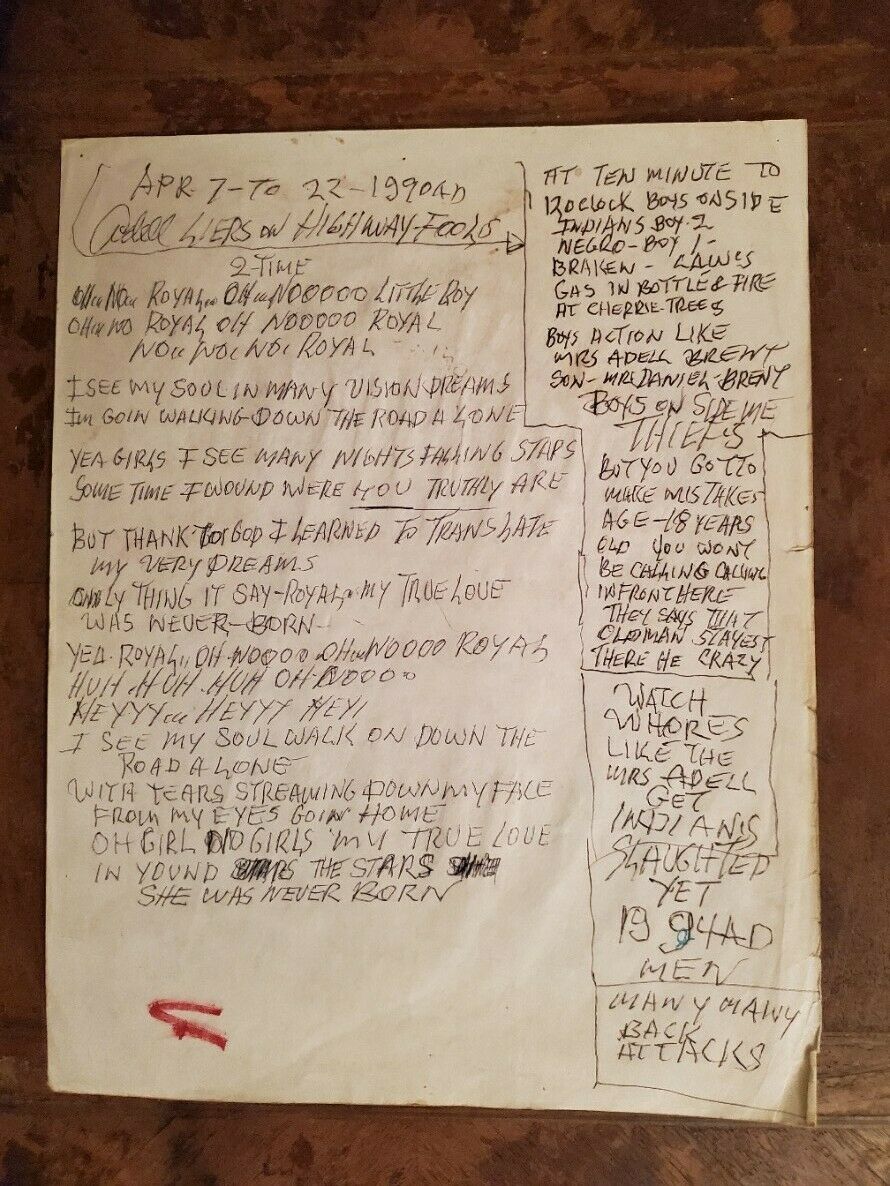 APR 7-TO 22-1990AD
Adell LIERS ON HIGHWAY-FOOLS
2-TIME
OH NO ROYAL OH NOOOOO LITTLE BOY
OH NO ROYAL OH NOOOOO ROYAL
NO NO NO ROYAL
I SEE MY SOUL IN MANY VISION DREAMS
Im GOIN WALKING DOWN THE ROAD A LONE
YEA GIRLS I SEE MANY NIGHTS FALLING STARS
SOME TIME I WOUND WERE YOU TRUTHLY ARE
BUT THANK GOD I LEARNED TO TRANSLATE
MY VERY DREAMS
ONLY THING IT SAY-ROYAL MY TRUE LOVE
WAS NEVER-BORN
YEA ROYAL OH NOOOO OH NOOOO ROYAL
HUH HUH HUH OH NOOOO
HEYYY HEYYY HEY!
I SEE MY SOUL WALK ON DOWN THE
ROAD A LONE
WITH TEARS STREAMING DOWN MY FACE
FROM MY EYES GOIN HOME
OH GIRL NO GIRLS MY TRUE LOVE
IN YOUND THE STARS
SHE WAS NEVER BORN
AT TEN MINUTE TO
12OCLOCK BOYS ONSIDE
INDIANS BOY-2
NEGRO-BOY 1-
BRAKEN - LAWS
GAS IN BOTTLE & FIRE
AT CHERRIE-TREES
BOYS ACTION LIKE
MRS ADELL BRENT
SON-MR DANIEL-BRENT
BOYS ON SIDE ME
THIEFS
BOT YOU GOT TO
MAKE MISTAKES
AGE-18 YEARS
OLD YOU WONT
BE CALLING CALLING
IN FRONT HERE
THEY SAYS THAT
OLD MAN STAYEST
THERE HE CRAZY
WATCH
WHORES
LIKE THE
MRS ADELL
GET
INDIANS
SLAUGHTED
YET
1994AD
MEN
MANY MANY
BACK
ATTACKS